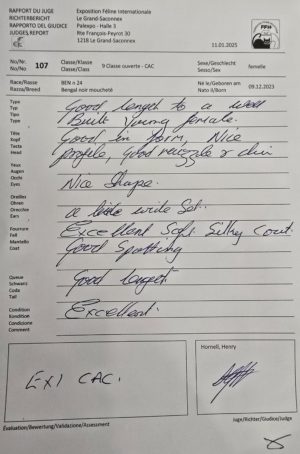 RAPPORT DU JUGE
RICHTERBERICHT
RAPPORTO DEL GIUDICE
JUDGES REPORT
Exposition Féline Internationale
Le Grand-Saconnex
Palexpo - Halle 3
Rte François-Peyrot 30
1218 Le Grand-Saconnex
11.01.2025
No/Nr.
No/No
107
Classe/Klasse
Classe/Class
9 Classe ouverte - CAC
Sexe/Geschlecht
Sesso/Sex
femelle
Race/Rasse
Razza/Breed
BEN n 24
Bengal noir moucheté
Né le/Geboren am
Nato il/Born
09.12.2023
Type
Typ
Tipo
Type
Good length to a well
Built Young female.
Tête
Kopf
Testa
Head
Good in form, Nice
profile, Good muzzle & chin
Yeux
Augen
Occhi
Eyes
Nice Shape.
Oreilles
Ohren
Orecchie
Ears
a little wide Set.
Fourrure
Fell
Mantello
Coat
Excellent Soft Silky Coat
Good Spotting
Queue
Schwanz
Coda
Tail
Good lenght
Condition
Kondition
Condizione
Condition
Excellent.
Commento
EX1 CAC.
Hornell, Henry
Juge/Richter/Giudice/Judge
Évaluation/Bewertung/Validazione/Assessment